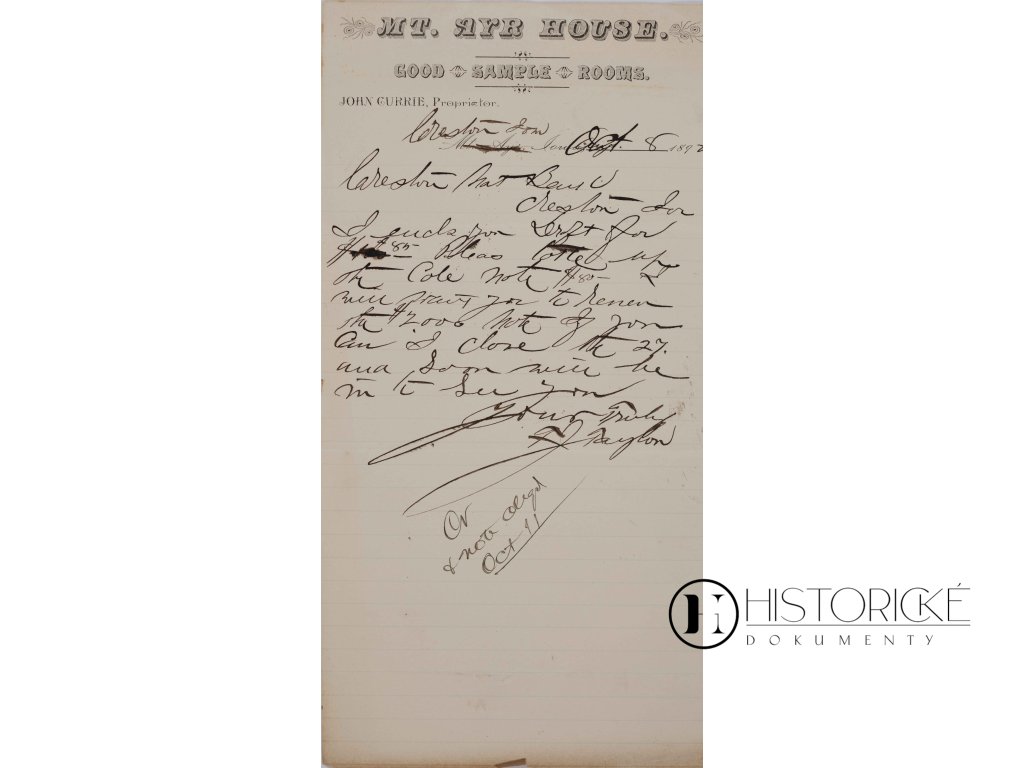 MT. AYR HOUSE.
GOOD SAMPLE ROOMS.
JOHN CURRIE, Proprietor.
Creston Iow
Mt. Ayr, Iowa, Oct. 8 1892
Creston Nat Bank
Creston Iow
I you Draft for
85 Pleas up
the Cole Note $85 I
will want you to Renew
the $2.000 Note If you
Can I close the 27.
and Soon will be
in to See you
Your Truly
T J Taylor
& note chgd
Oct 11
HISTORICKÉ
DOKUMENTY